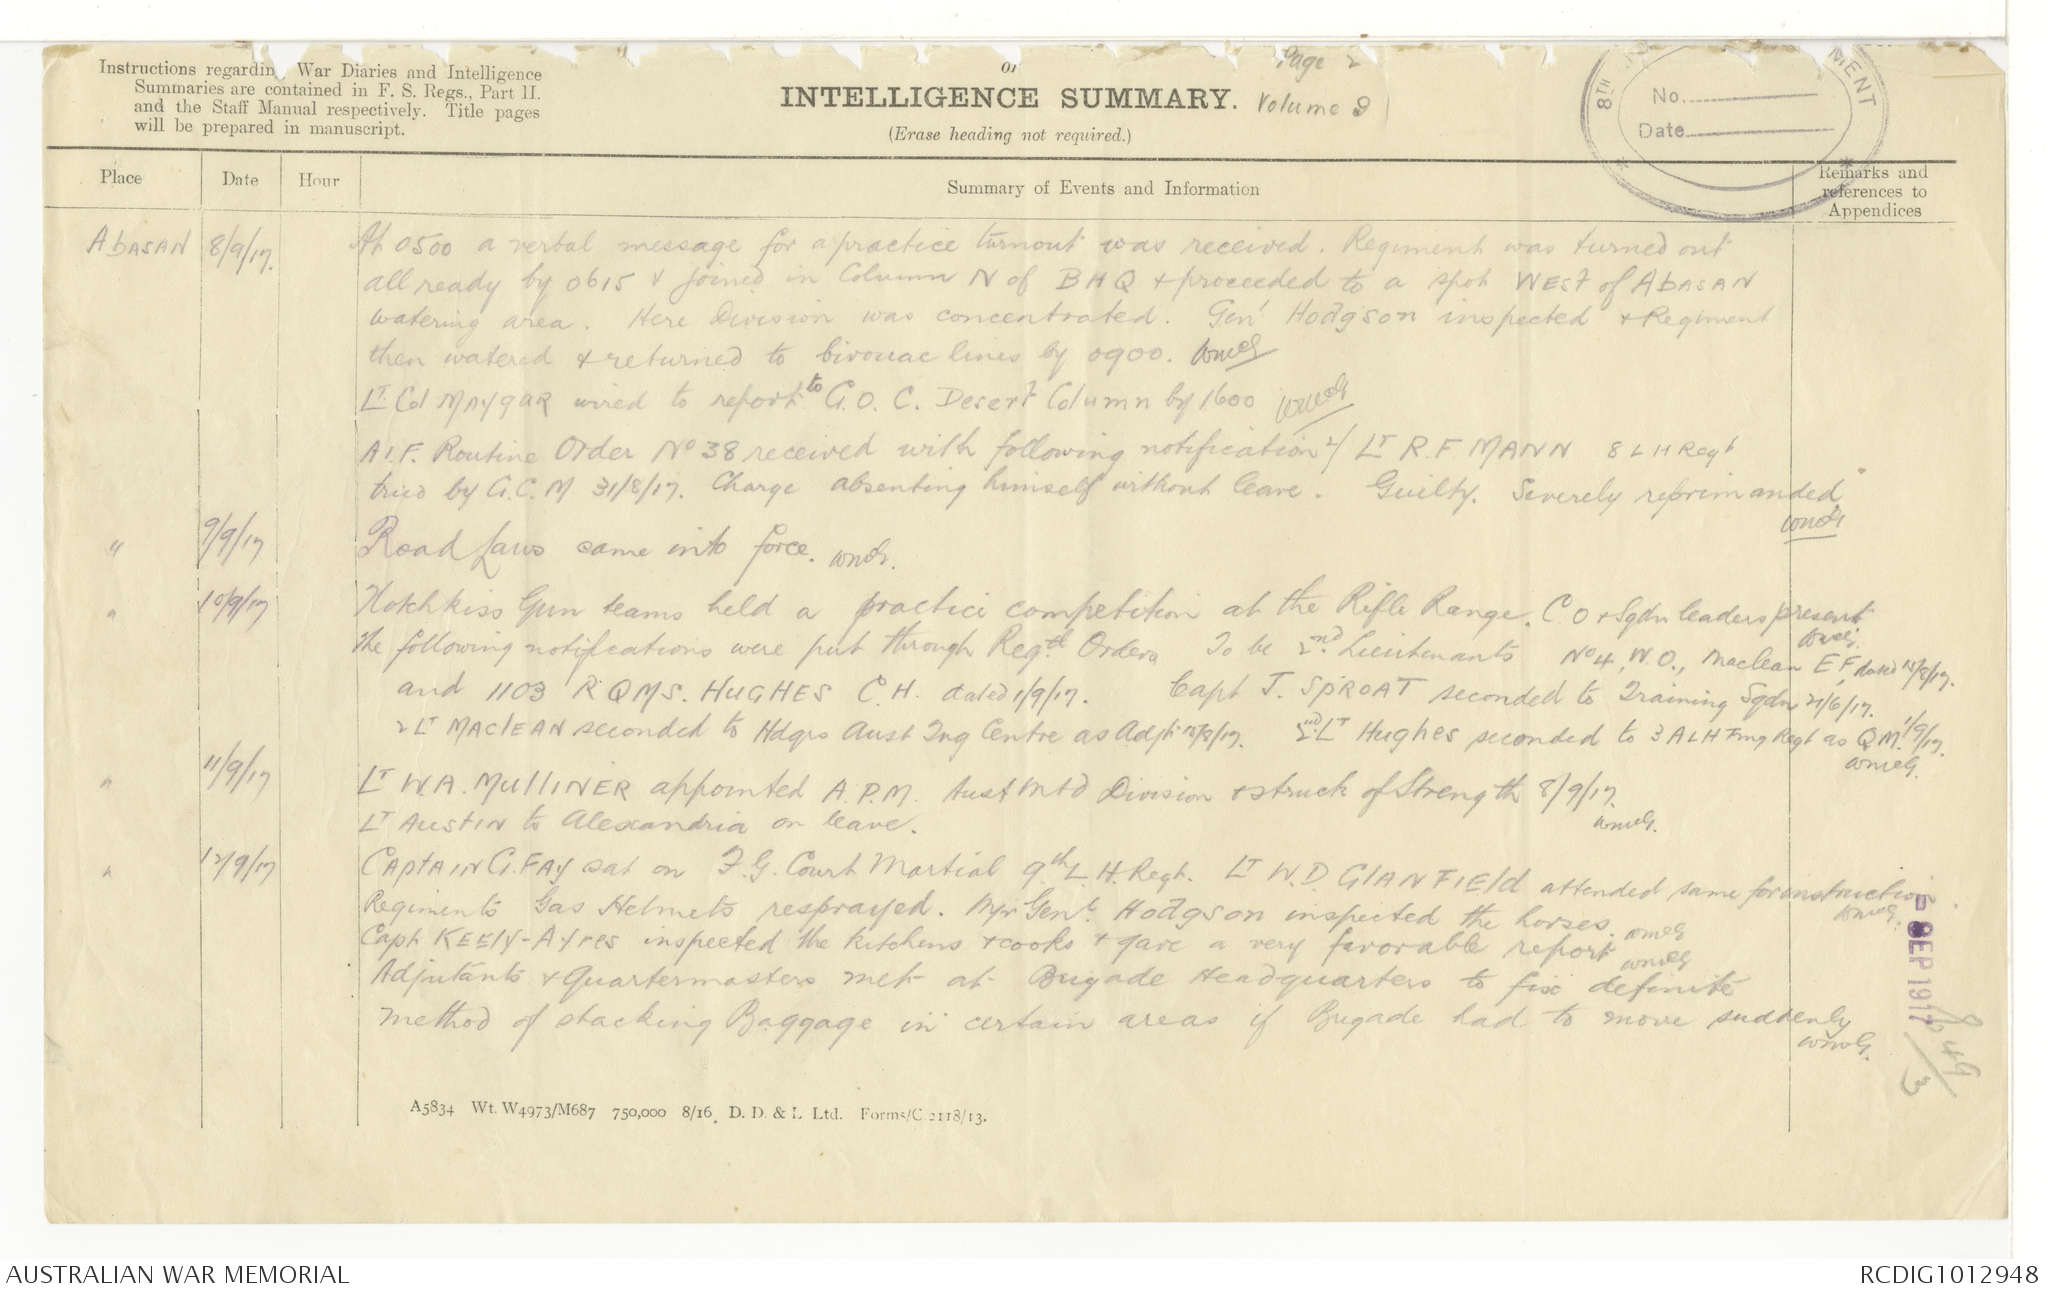 Instructions regarding War Diaries and Intelligence
Summaries are contained in F. S. Regs., Part II.
and the Staff Manual respectively. Title pages
will be prepared in manuscript.
or
INTELLIGENCE SUMMARY.
(Erase heading not required.)
Page 2
Volume 8
8TH MENT
No.
Date
Place Date Hour Summary of Events and Information Remarks and references to Appendices
Abasan 8/9/17. At 0500 a verbal message for a practice turnout was received. Regiment was turned out
all ready by 0615 & joined in Column N of BHQ & proceeded to a spot WEST of Abasan
watering area. Here Division was concentrated. Genl Hodgson inspected & Regiment
then watered & returned to bivouac lines by 0900. WMcG
Lt Col MAYGAR wired to report to G.O.C. Desert Column by 1600 WMcG
A.I.F. Routine Order No 38 received with following notification Lt R. F MANN 8 L H Regt
tried by G.C.M 31/8/17. Charge absenting himself without leave. Guilty. Severely reprimanded
WMcG
" 9/9/17 Road Laws came into force. WMcG.
" 10/9/17 Hotchkiss Gun teams held a practice competition at the Rifle Range. C.O & Sqdn leaders present
WMcG.
The following notifications were put through Regtl Orders To be 2nd Lieutenants No 4, W.O., Maclean E F, dated 13/8/17.
and 1103 RQMS. HUGHES C.H. dated 1/9/17. Capt J. SPROAT seconded to Training Sqdn 21/6/17.
2 Lt MAClEAN seconded to Hdqrs Aust Tng Centre as Adjt 13/8/17. 2nd Lt Hughes seconded to 3 ALH Tng Regt as QM. 1/9/17.
WMcG.
" 11/9/17 Lt W.A. MUllINER appointed A.P.M. Aust Mtd Division & struck of Strength 8/9/17.
Lt AUSTIN to Alexandria on leave. WMcG.
" 12/9/17 CAPTAIN G. FAY sat on F.G. Court Martial 9th L.H. Regt. Lt W.D. GlANFIEld attended same for instruction
WMcG.
Regiments Gas Helmets resprayed. Mjr Genl Hodgson inspected the horses. WMcG
Capt KEEly-Ayres inspected the kitchens & cooks & gave a very favorable report WMcG
Adjutants & Quartermasters met at Brigade Headquarters to fix definite
method of stacking Baggage in certain areas if Brigade had to move suddenly
WMcG.
SEP 1917
A5834 Wt. W4973/M687 750,000 8/16. D. D. & L. Ltd. Forms/C.2118/13.
AUSTRALIAN WAR MEMORIAL
RCDIG1012948